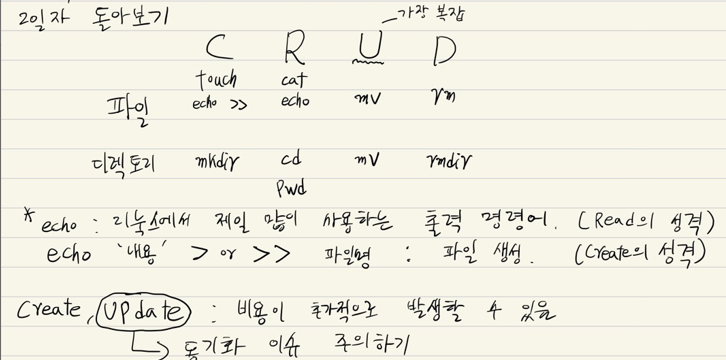 2일자 돌아보기
가장 복잡
C R U D
touch cat
파일 echo >> echo mv rm
디렉토리 mkdir cd mv rmdir
pwd
* echo : 리눅스에서 제일 많이 사용하는 출력 명령어. (Read의 성격)
echo '내용' > or >> 파일명 : 파일 생성. (Create의 성격)
Create, UPdate : 비용이 추가적으로 발생할 수 있음
동기화 이슈 주의하기